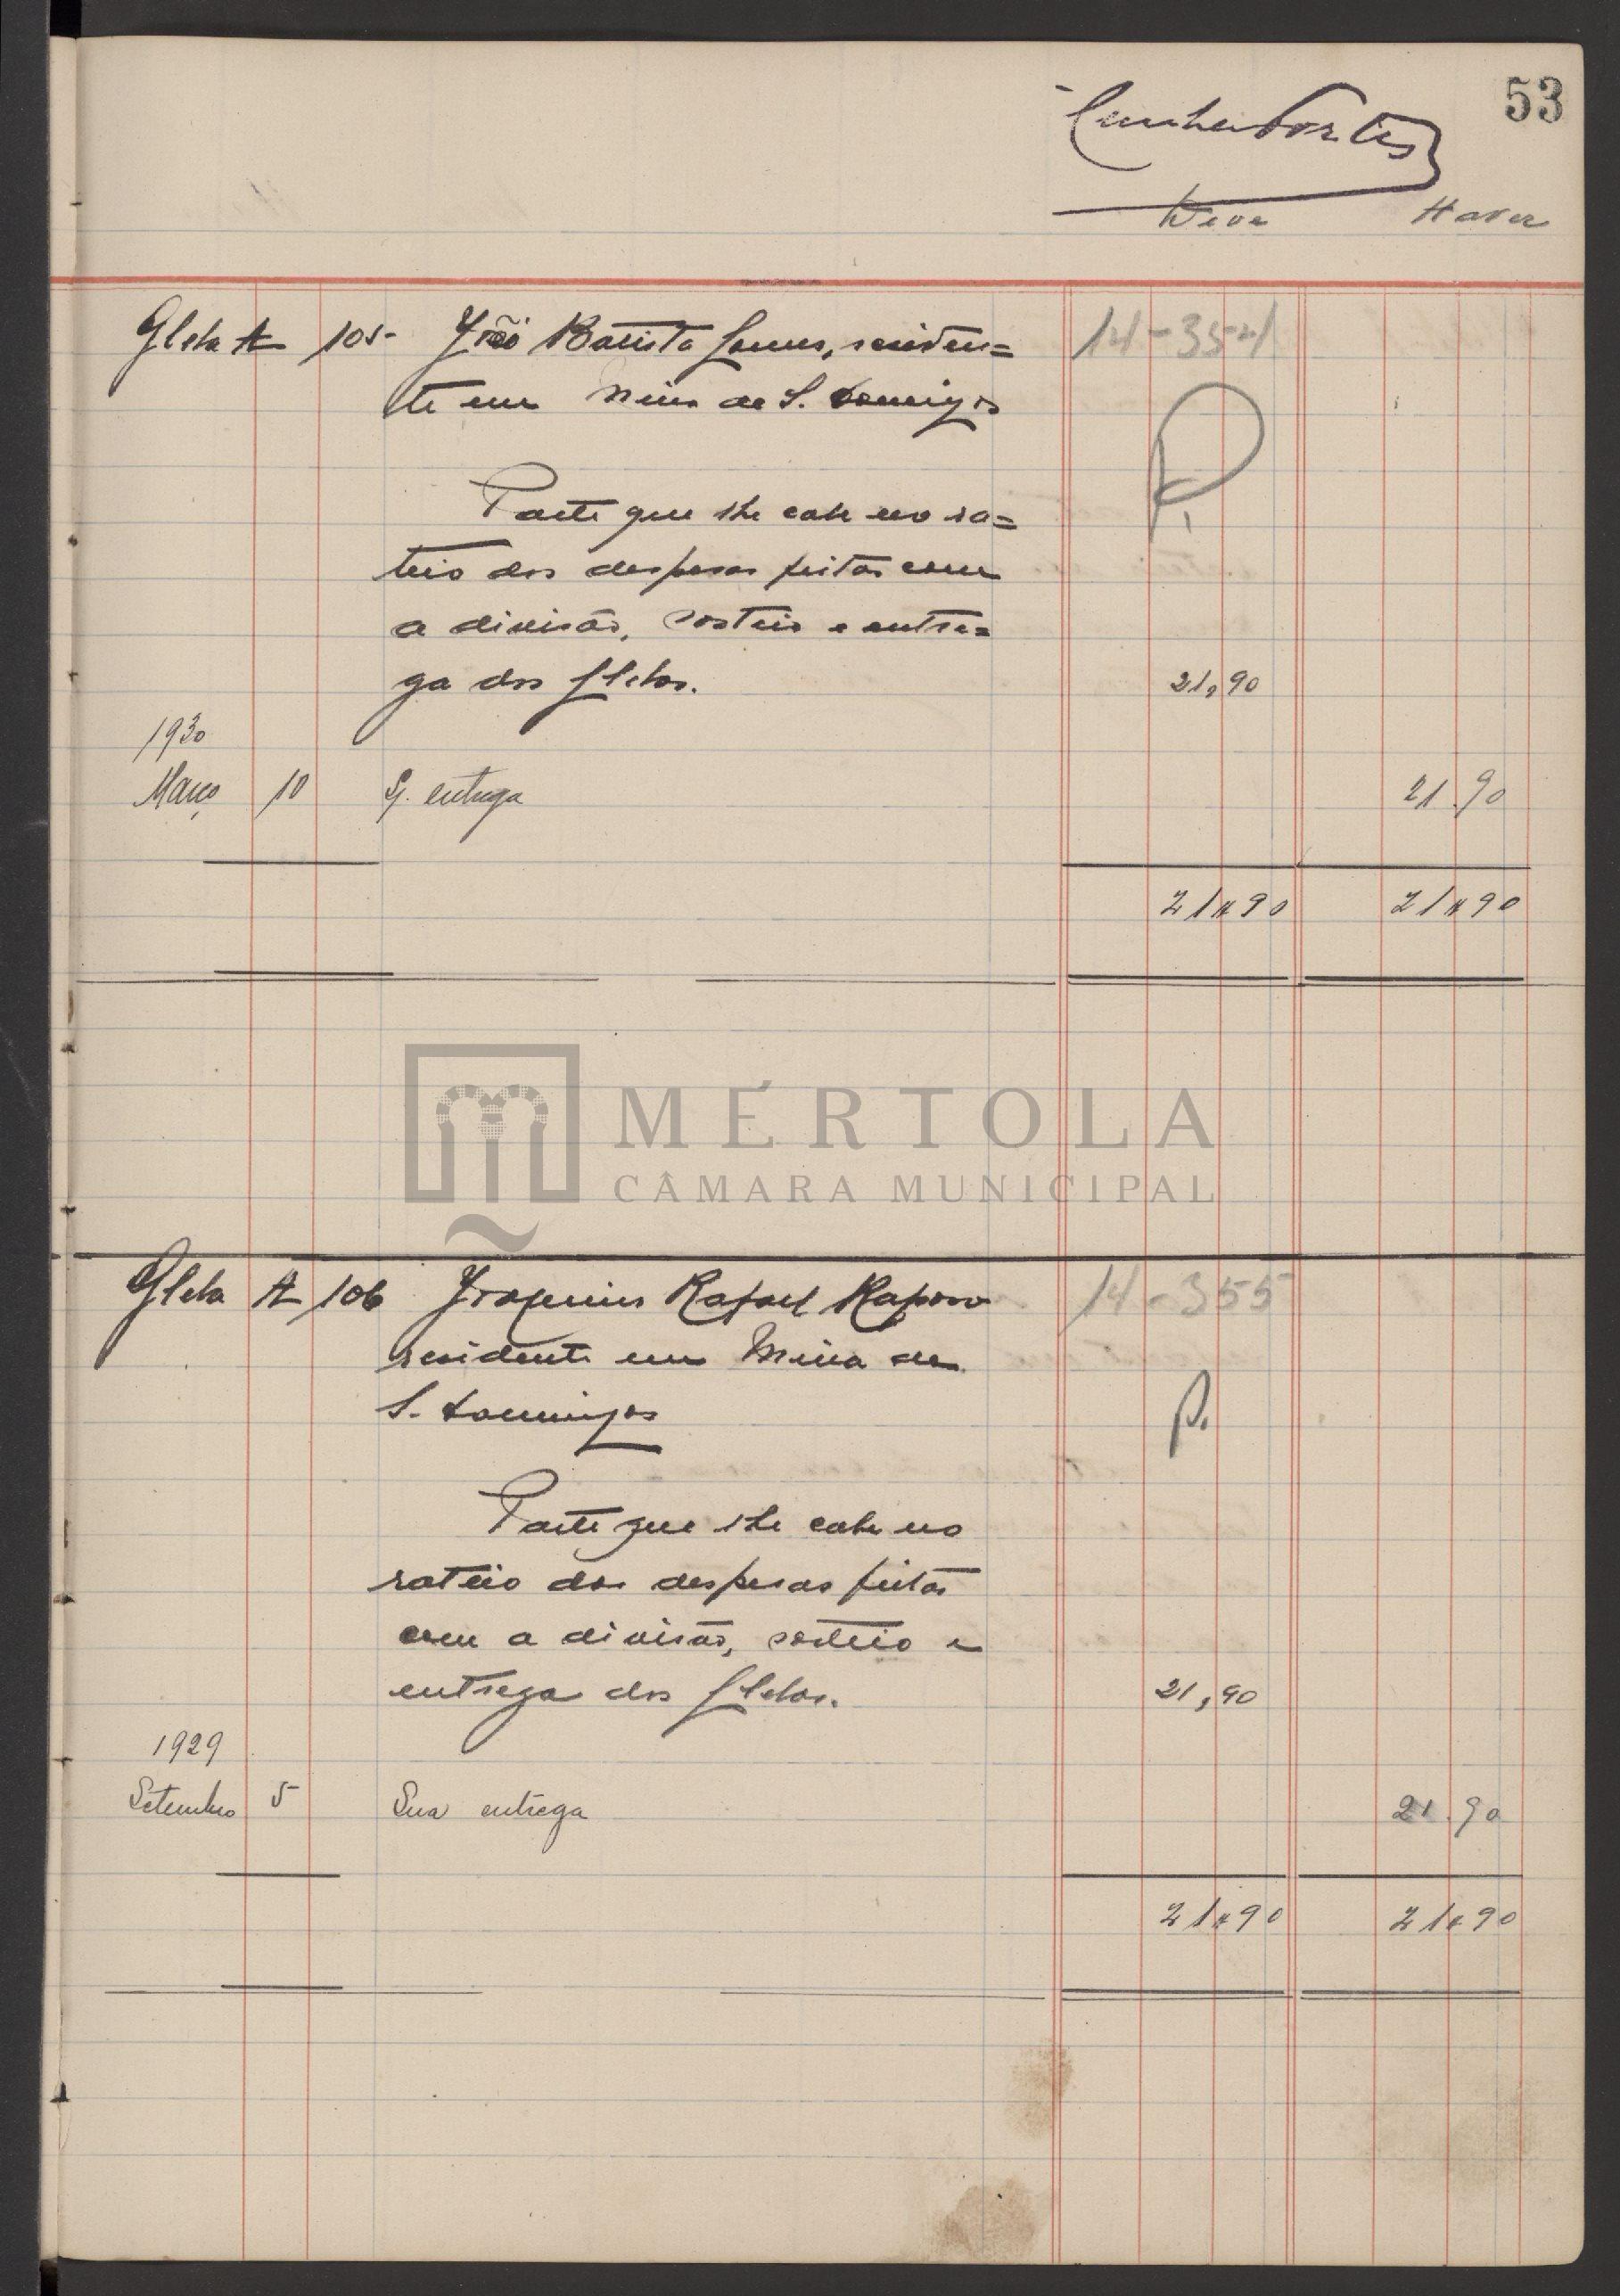 53
Deve Haver
Gleba A 105 João Batista Gomes, residen=
14-354
te em Mina de S. Domingos
P.
Parte que lhe cabe no ra=
teio das despesas feitas com
a divisão, sorteio e entre=
ga das glebas. 21,90
1930
Março 10 S. entrega 21.90
21$90 21$90
MÉRTOLA
CÂMARA MUNICIPAL
Gleba A 106 Joaquim Rafael Raposo
14-355
residente em Mina de
S. Domingos
P.
Parte que lhe cabe no
rateio das despesas feitas
com a divisão, sorteio e
entrega das glebas. 21,90
1929
Setembro 5 Sua entrega 21.90
21$90 21$90